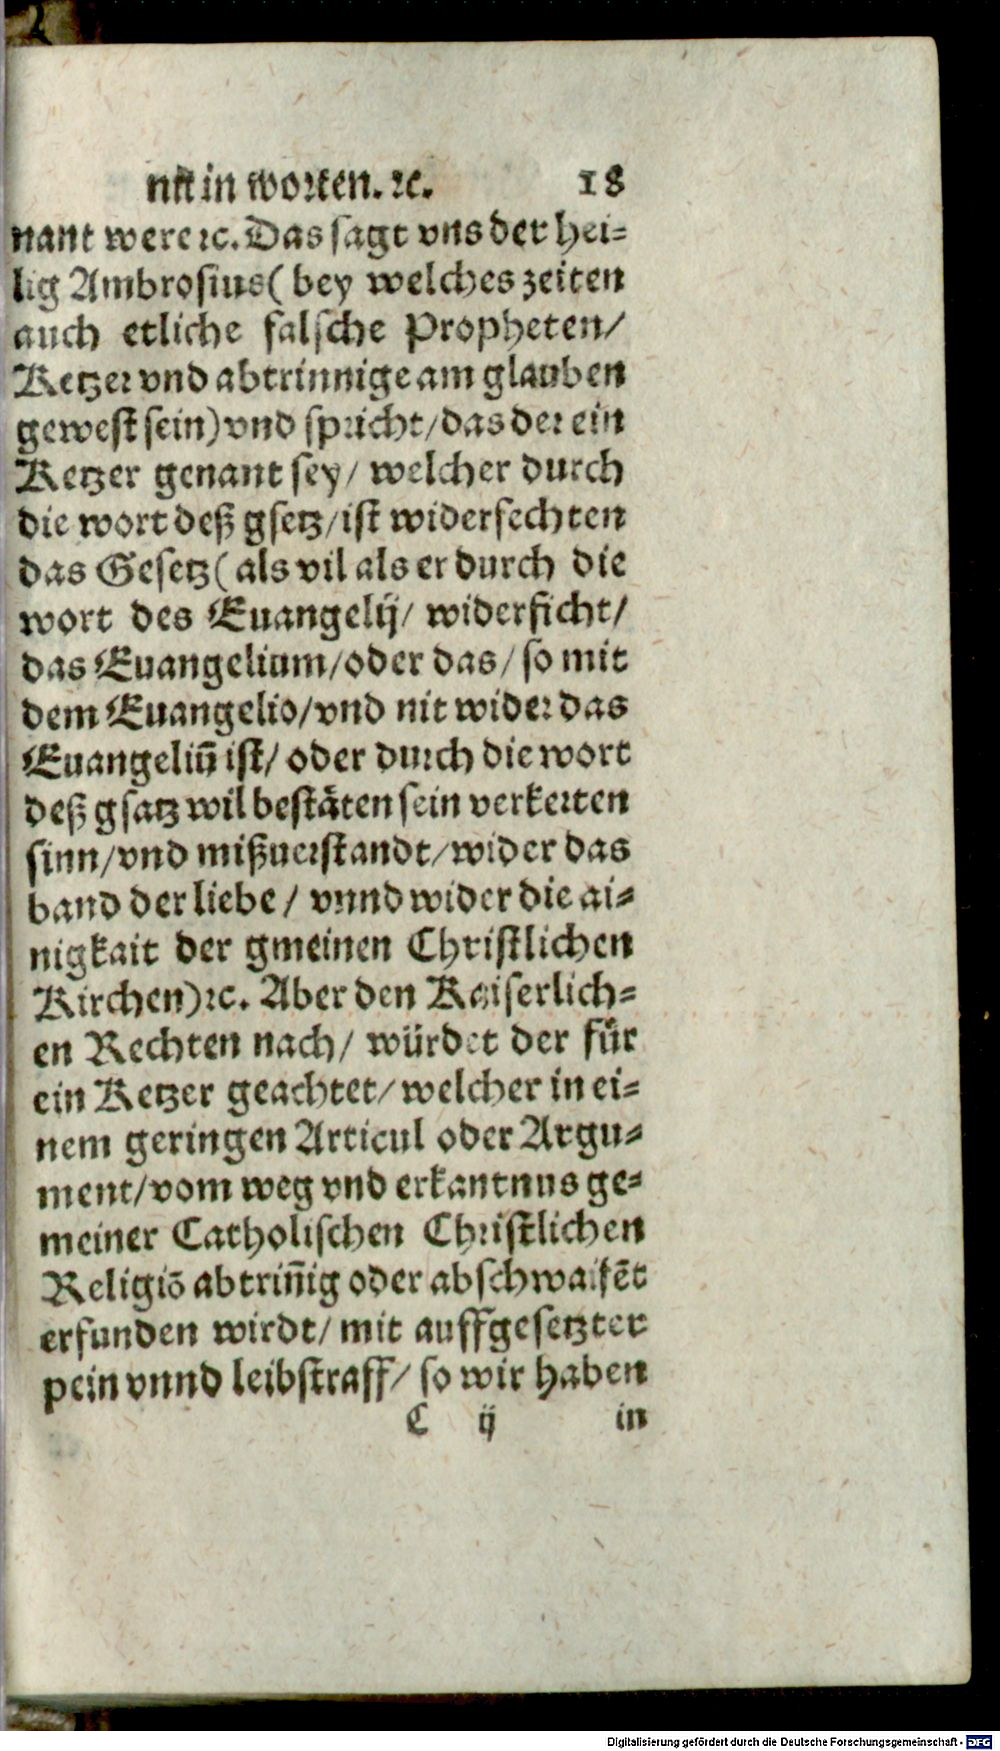 nit in worten. ⁊c. 18
nant were ⁊c. Das sagt vns der hei=
lig Ambrosius ( bey welches zeiten
auch etliche falsche Propheten/
Ketzer vnd abtrinnige am glauben
gewest sein) vnd spricht/ das der ein
Ketzer genant sey/ welcher durch
die wort deß gsetz/ ist widerfechten
das Gesetz ( als vil als er durch die
wort des Euangelij/ widerficht/
das Euangelium/ oder das/ so mit
dem Euangelio/ vnd nit wider das
Euangeliū ist/ oder durch die wort
deß gsatz wil bestäten sein verkerten
sinn/ vnd mißuerstandt/ wider das
band der liebe / vnnd wider die ai=
nigkait der gmeinen Christlichen
Kirchen) ⁊c. Aber den Kaiserlich=
en Rechten nach/ würdet der für
ein Ketzer geachtet/ welcher in ei=
nem geringen Articul oder Argu=
ment/ vom weg vnd erkantnus ge=
meiner Catholischen Christlichen
Religiō abtrin̄ig oder abschwaifēt
erfunden wirdt/ mit auffgesetzter
pein vnnd leibstraff/ so wir haben
C ij in
Digitalisierung gefördert durch die Deutsche Forschungsgemeinschaft - DFG